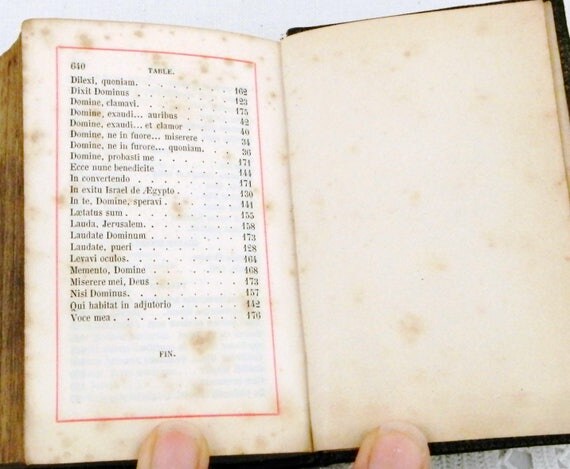 640 TABLE.
Dilexi, quoniam. . . . . . . . . 162
Dixit Dominus . . . . . . . . . 123
Domine, clamavi. . . . . . . . . 175
Domine, exaudi... auribus . . . . . 42
Domine, exaudi... et clamor . . . . 40
Domine, ne in fuore... miserere . . . 34
Domine, ne in furore... quoniam. . . 36
Domine, probasti me . . . . . . . 171
Ecce nunc benedicite . . . . . . . 144
In convertendo . . . . . . . . . 171
In exitu Israel de Ægypto . . . . . 130
In te, Domine, speravi . . . . . . 141
Lætatus sum . . . . . . . . . . 155
Lauda, Jerusalem. . . . . . . . . 158
Laudate Dominum . . . . . . . . 173
Laudate, pueri . . . . . . . . . 128
Levavi oculos. . . . . . . . . . 164
Memento, Domine . . . . . . . . 168
Miserere mei, Deus . . . . . . . . 173
Nisi Dominus. . . . . . . . . . 157
Qui habitat in adjutorio . . . . . . 142
Voce mea . . . . . . . . . . . 176
FIN.